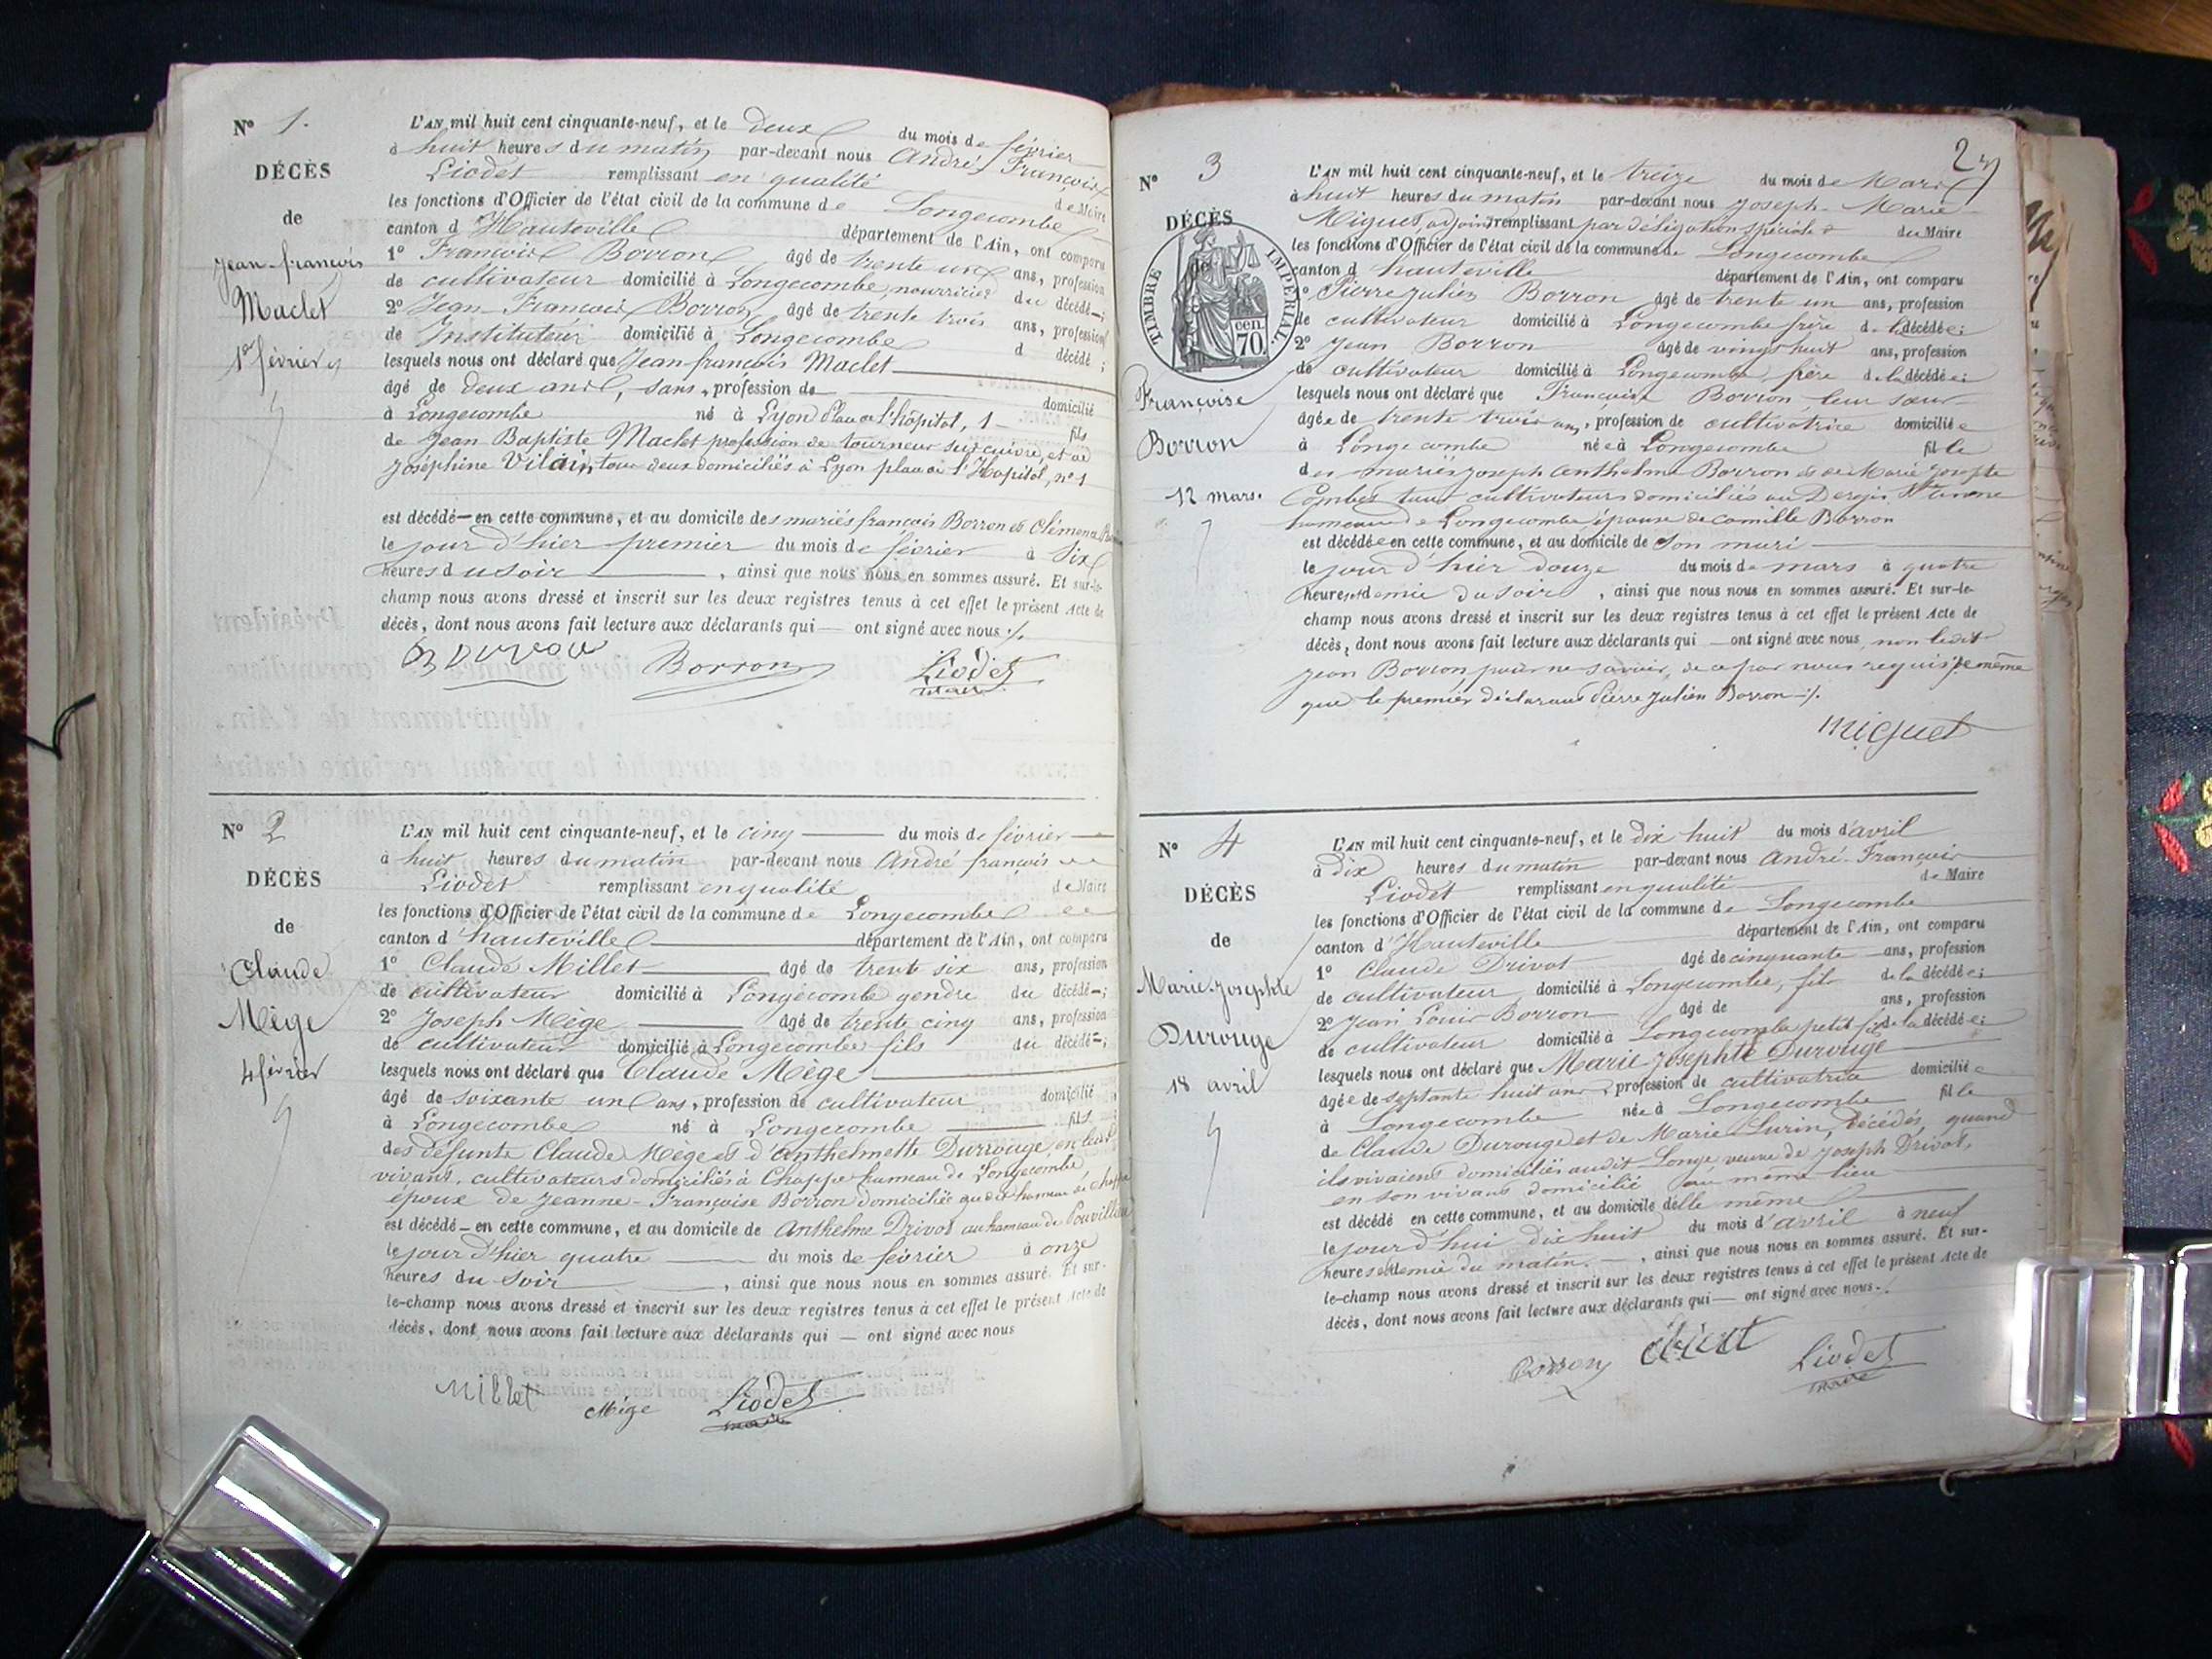 N° 1.
DÉCÈS
de
Jean-françois
Maclet
1er février
L'AN mil huit cent cinquante-neuf, et le deux du mois de février
à huit heures du matin par-devant nous André François
Liodet remplissant en qualité de Maire
les fonctions d'Officier de l'état civil de la commune de Longecombe
canton d'Hauteville département de l'Ain, ont comparu
1° François Borron âgé de trente un ans, profession
de cultivateur domicilié à Longecombe, nourricier du décédé ;
2° Jean François Borron âgé de trente trois ans, profession
de Instituteur domicilié à Longecombe d décédé ;
lesquels nous ont déclaré que Jean-françois Maclet
âgé de deux ans, sans profession de domicilié
à Longecombe né à Lyon Place de l'hôpital, 1 fils
de Jean Baptiste Maclet profession de tourneur sur cuivre, et de
Joséphine Vilain, tous deux domiciliés à Lyon place de l'Hopital, n° 1
est décédé en cette commune, et au domicile des mariés françois Borron et Clémence
le jour d'hier premier du mois de février à Six
heures du soir , ainsi que nous nous en sommes assuré. Et sur-le-
champ nous avons dressé et inscrit sur les deux registres tenus à cet effet le présent Acte de
décès, dont nous avons fait lecture aux déclarants qui ont signé avec nous ./.
Borron Liodet
maire
N° 2
DÉCÈS
de
Claude
Mège
4 février
L'AN mil huit cent cinquante-neuf, et le cinq du mois de février
à huit heures du matin par-devant nous André françois
Liodet remplissant en qualité de Maire
les fonctions d'Officier de l'état civil de la commune de Longecombe
canton d'hauteville département de l'Ain, ont comparu
1° Claude Millet âgé de trente six ans, profession
de cultivateur domicilié à Longecombe gendre du décédé ;
2° Joseph Mège âgé de trente cinq ans, profession
de cultivateur domicilié à Longecombe fils du décédé ;
lesquels nous ont déclaré que Claude Mège
âgé de soixante un ans, profession de cultivateur domicilié
à Longecombe né à Longecombe fils
des défunts Claude Mège et d'Anthelmette Durrouge, en leur
vivant, cultivateurs domiciliés à Chappe hameau de Longecombe
époux de Jeanne-Françoise Borron domiciliée audit hameau de Chappe
est décédé en cette commune, et au domicile de Anthelme Drivot au hameau de
le jour d'hier quatre du mois de février à onze
heures du soir , ainsi que nous nous en sommes assuré. Et sur-
le-champ nous avons dressé et inscrit sur les deux registres tenus à cet effet le présent Acte de
décès, dont nous avons fait lecture aux déclarants qui ont signé avec nous
Millet Mège Liodet
maire
2
N° 3
DÉCÈS
de
TIMBRE IMPÉRIAL.
70 cen.
Françoise
Borron
12 mars.
L'AN mil huit cent cinquante-neuf, et le treize du mois de Mars
à huit heures du matin par-devant nous Joseph-Marie
Miguet, adjoint remplissant par délégation spéciale du Maire
les fonctions d'Officier de l'état civil de la commune de Longecombe
canton d'hauteville département de l'Ain, ont comparu
1° Pierre Julien Borron âgé de trente un ans, profession
de cultivateur domicilié à Longecombe frère de la décédée ;
2° Jean Borron âgé de vingt huit ans, profession
de cultivateur domicilié à Longecombe, frère de la décédée ;
lesquels nous ont déclaré que Françoise Borron, leur sœur
âgée de trente trois ans, profession de cultivatrice domiciliée
à Longecombe née à Longecombe fille
des mariés Joseph Anthelme Borron et de Marie Josephte
Combet tous cultivateurs domiciliés au
hameau de Longecombe épouse de Camille Borron
est décédée en cette commune, et au domicile de Son mari
le jour d'hier douze du mois de mars à quatre
heures et demie du soir , ainsi que nous nous en sommes assuré. Et sur-le-
champ nous avons dressé et inscrit sur les deux registres tenus à cet effet le présent Acte de
décès, dont nous avons fait lecture aux déclarants qui ont signé avec nous non ledit
Jean Borron pour ne savoir, de ce par nous requis, de même
que le premier déclarant Pierre Julien Borron ./.
Miguet
N° 4
DÉCÈS
de
Marie-Josephte
Durouge
18 avril
L'AN mil huit cent cinquante-neuf, et le dix huit du mois d'avril
à dix heures du matin par-devant nous André-François
Liodet remplissant en qualité de Maire
les fonctions d'Officier de l'état civil de la commune de Longecombe
canton d'Hauteville département de l'Ain, ont comparu
1° Claude Drivot âgé de cinquante ans, profession
de cultivateur domicilié à Longecombe, fils de la décédée ;
2° Jean Louis Borron âgé de ans, profession
de cultivateur domicilié à Longecombe petit fils de la décédée ;
lesquels nous ont déclaré que Marie Josephte Durouge
âgée de septante huit ans, profession de cultivatrice domiciliée
à Longecombe née à Longecombe fille
de Claude Durouge et de Marie Lurin, décédés, quand
ils vivaient domiciliés audit Longe, veuve de Joseph Drivot,
en son vivant domicilié au même lieu
est décédé en cette commune, et au domicile d'elle même
le jour d'hui dix huit du mois d'avril à neuf
heures et demie du matin. , ainsi que nous nous en sommes assuré. Et sur-
le-champ nous avons dressé et inscrit sur les deux registres tenus à cet effet le présent Acte de
décès, dont nous avons fait lecture aux déclarants qui ont signé avec nous ./.
Borron Liodet
maire